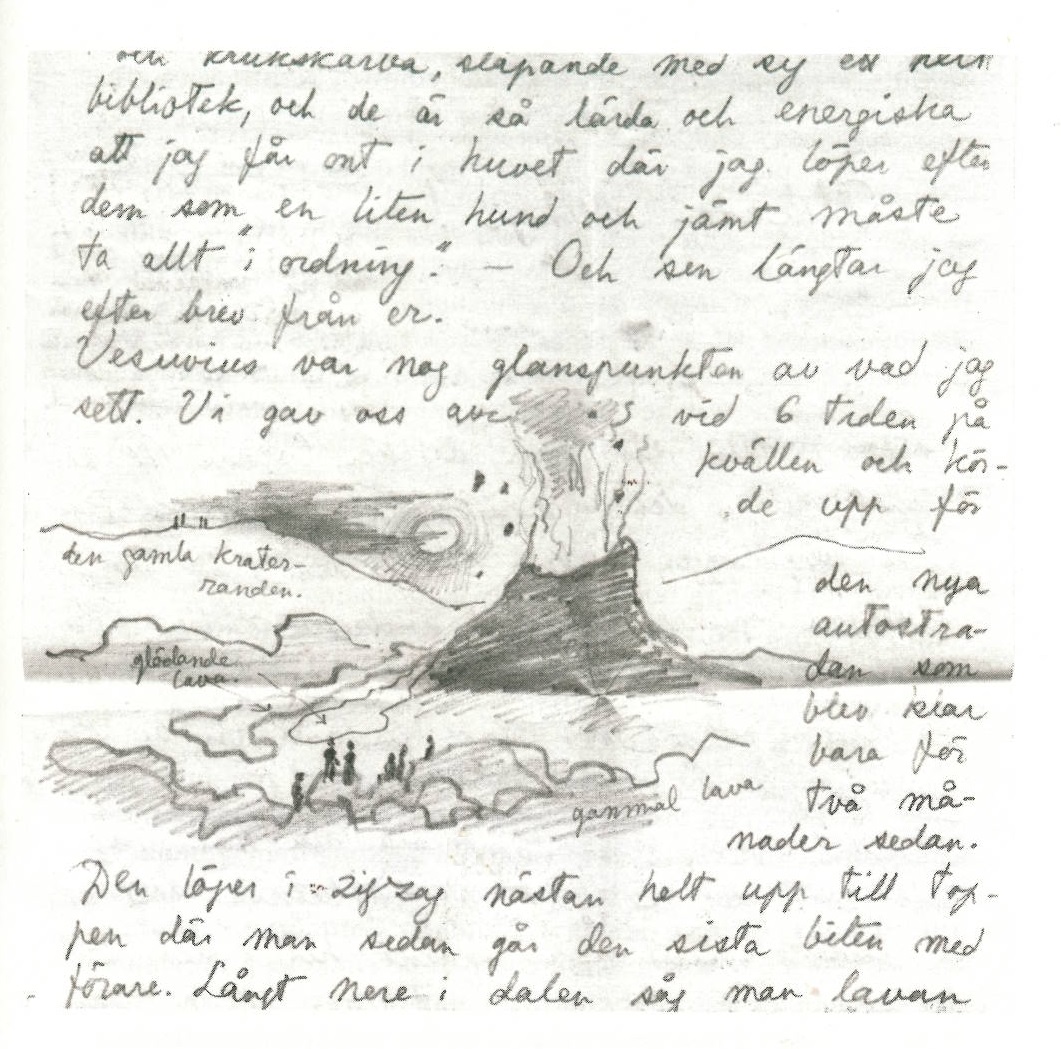 och krukskärva, släpande med sej ett helt
bibliotek, och de är så lärda och energiska
att jag får ont i huvet där jag löper efter
dem som en liten hund och jämt måste
ta allt "i ordning". — Och sen längtar jag
efter brev från er.
Vesuvius var nog glanspunkten av vad jag
sett. Vi gav oss vid 6 tiden på
kvällen och kör-
de upp för
den gamla krater-
randen.
den nya
autostra-
dan som
glödande
lava.
blev klar
bara för
två må-
gammal lava
nader sedan.
Den löper i zigzag nästan helt upp till top-
pen där man sedan går den sista biten med
förare. Långt nere i dalen såg man lavan